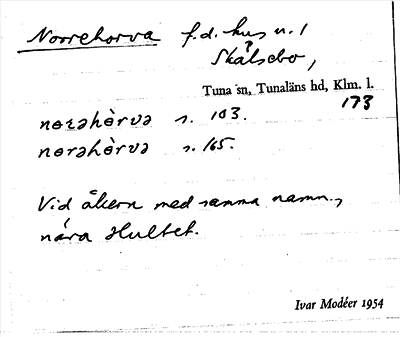 Norrehorva f.d. hus u. 1
Skålsebo,
Tuna sn, Tunaläns hd, Klm. l.
173
nɷrəhèrvə s. 103.
nɷrəhèrvə s. 165.
Vid åkern med samma namn,
nära Hultet.
Ivar Modéer 1954